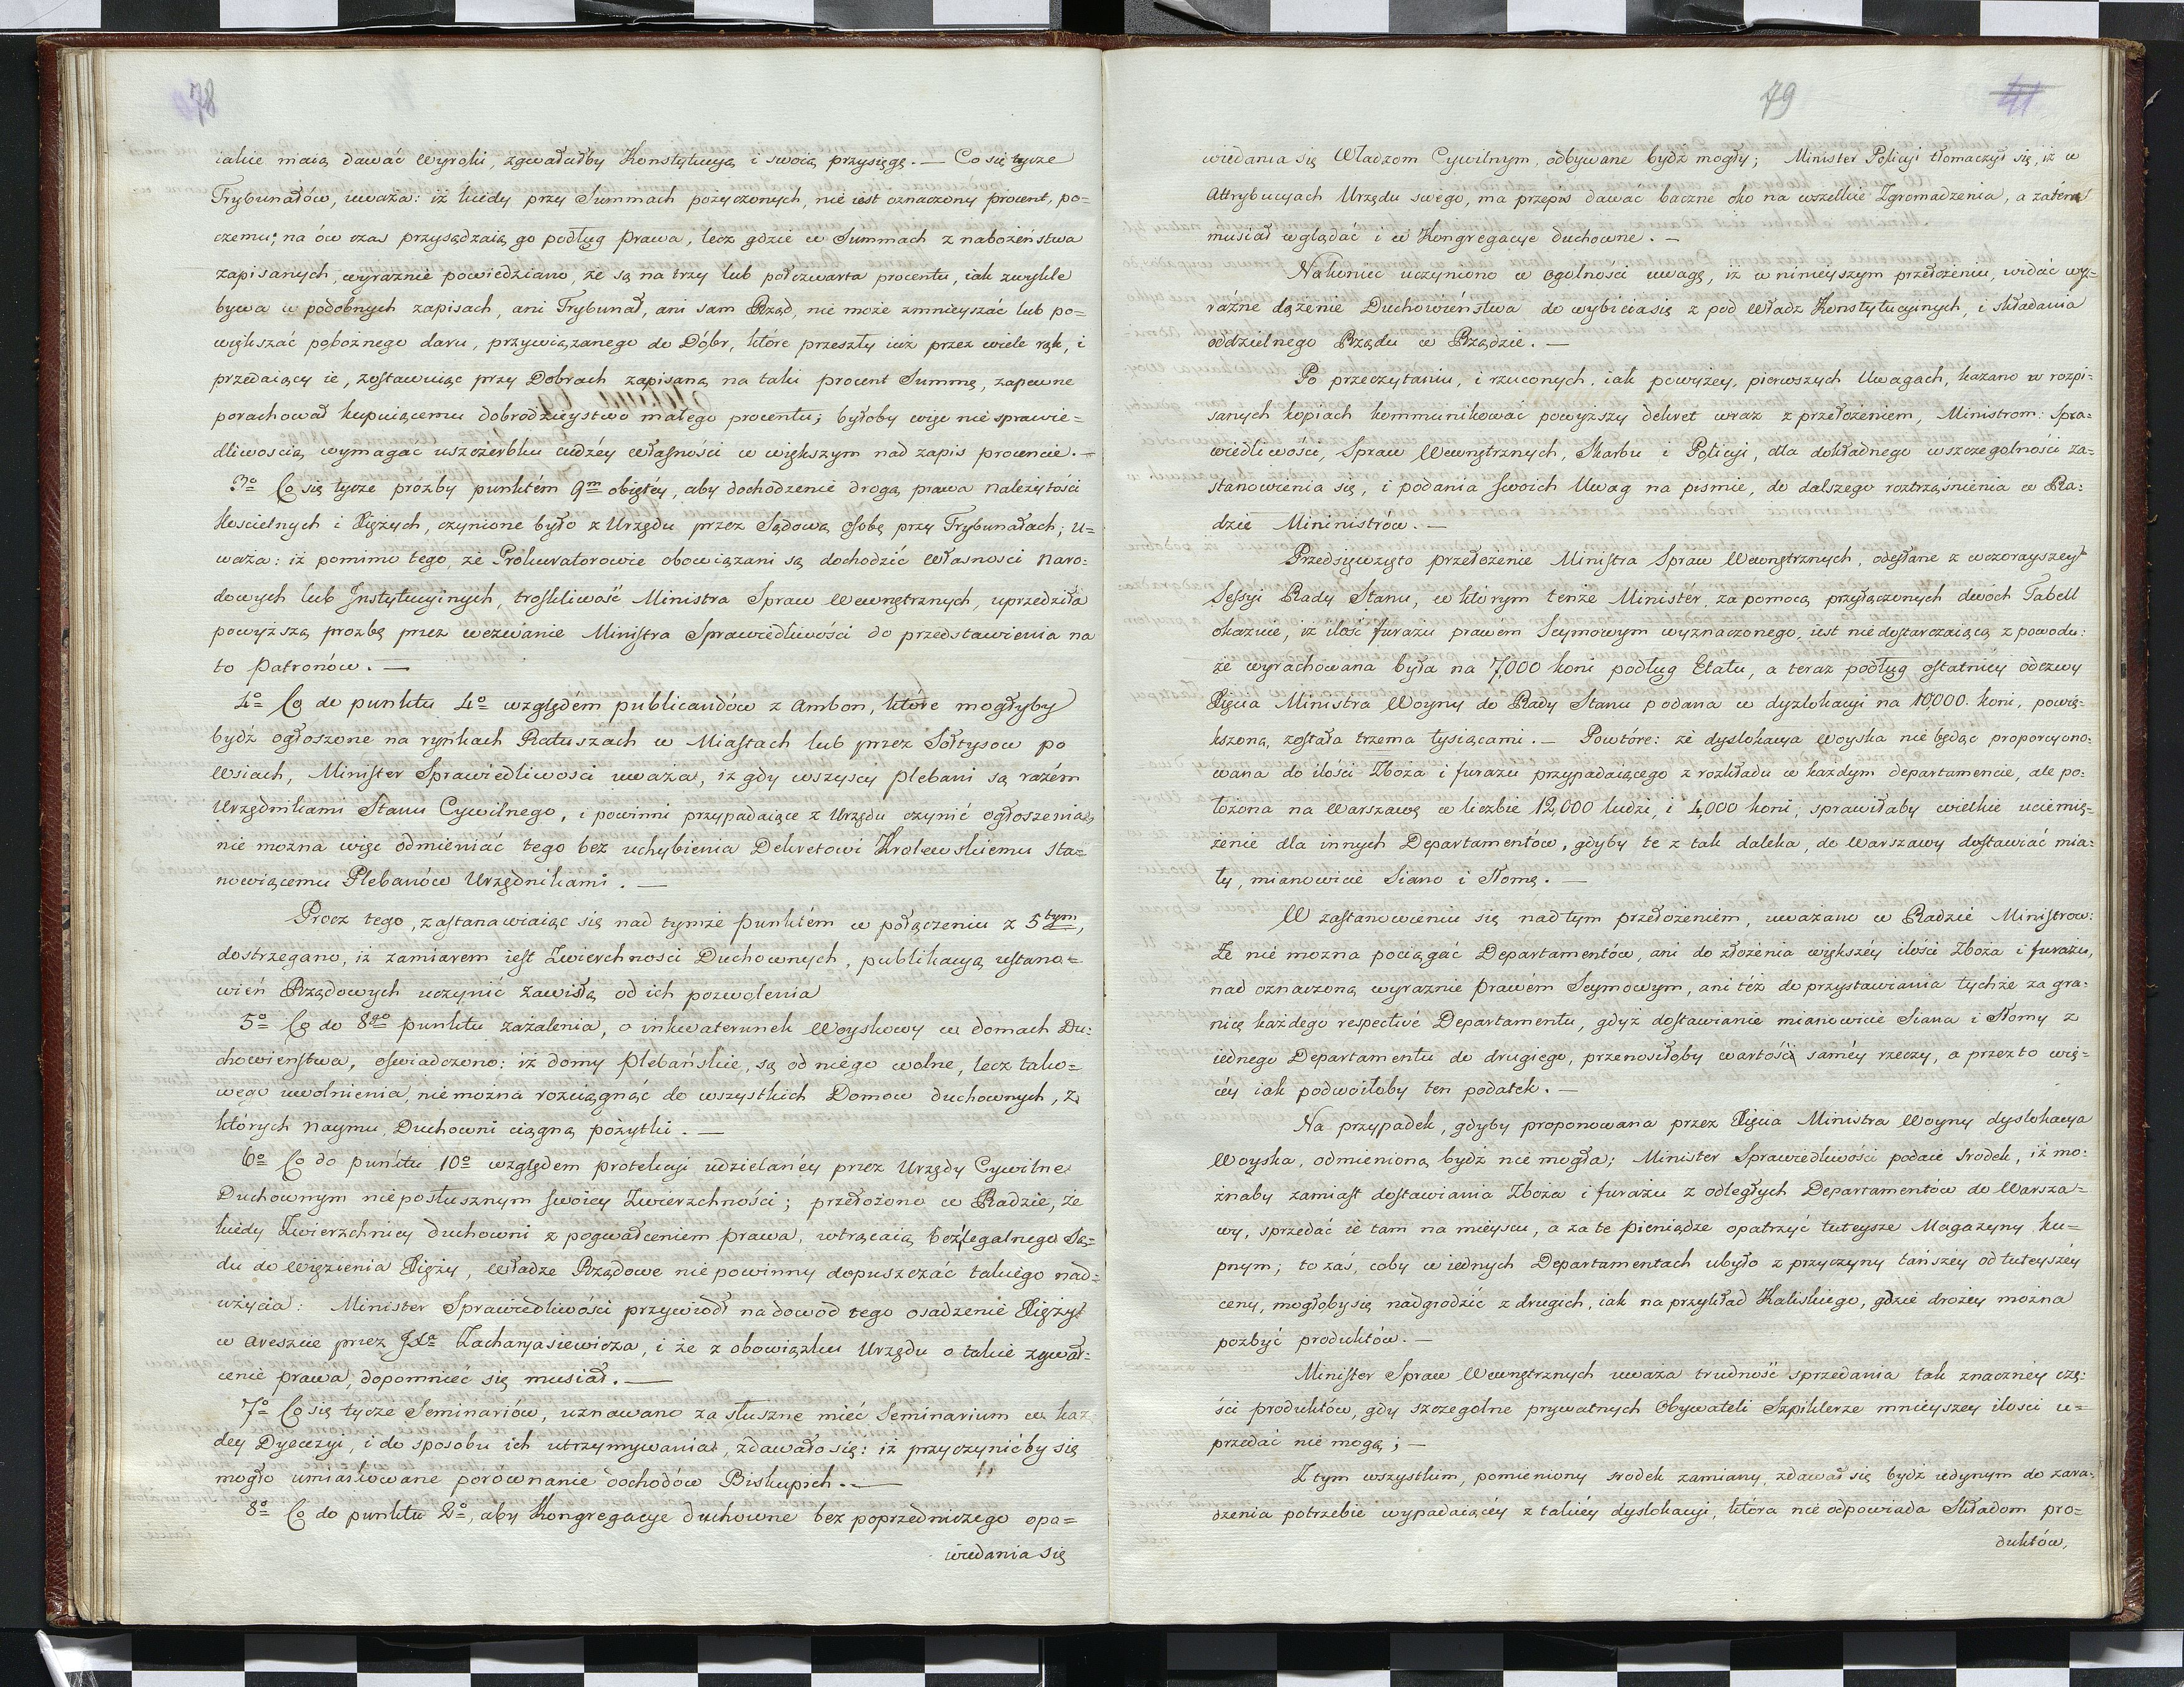 78
iakie maią dawać wyroki, zgwałciłby Konstytucyą i swoią przysięgę. — Co się tycze
Trybunałów, uważa: iż kiedy przy Summach pożyczonych, nie iest oznaczony procent, po-
czemu; na ów czas przysądzaią go podług prawa, lecz gdzie w Summach z nabożeństwa
zapisanych, wyraznie powiedziano, że są na trzy lub półczwarta procentu, iak zwykle
bywa w podobnych zapisach, ani Trybunał, ani sam Rząd, nie może zmnieyszać lub po=
większać pobożnego daru, przywiązanego do Dóbr, które przeszły iuż przez wiele rąk, i
przedaiący ie, zostawuiąc przy Dobrach zapisaną na taki procent Summę, zapewne
porachował kupuiącemu dobrodzieystwo małego procentu; byłoby więc nie sprawie=
dliwością wymagać uszczerbku cudzéy własności w większym nad zapis procencie. —
3º Co się tycze prózby punktém 9m obiętéy, aby dochodzenie drogą prawa należytości
kościelnych i Xiężych, czynione było z Urzędu przez Sądową osobę przy Trybunałach; u=
waża: iż pomimo tego, że Prokuratorowie obowiązani są dochodzić własności naro=
dowych lub Instytucyinych, troskliwość Ministra Spraw Wewnętrznych, uprzedziła
powyższą prozbę przez wezwanie Ministra Sprawiedliwości do przedstawienia na
to Patronów. —
4º Co do punktu 4º względém publicandów z ambon, które mogłyby
bydź ogłoszone na rynkach Ratuszach w Miastach lub przez Sołtysow po
Wsiach, Minister Sprawiedliwości uważa, iż gdy wszyscy plebani są razém
Urzędnikami Stanu Cywilnego, i powinni przypadaiące z Urzędu czynić ogłoszenia,
nie można więc odmieniać tego bez uchybienia Dekretowi Krolewskiemu sta=
nowiącemu Plebanów Urzędnikami. —
Procz tego, zastanawiaiąc się nad tymże punktém w połączeniu z 5tym,
dostrzegano, iż zamiarem iest Zwierchności Duchownych, publikacyą ustano=
wień Rządowych uczynić zawisłą od ich pozwolenia
5º Co do 8go punktu zażalenia, o inkwaterunek Woyskowy w domach Du=
chowieństwa, oswiadczono: iż domy plebańskie, są od niego wolne, lecz tako=
wego uwolnienia, nie można rozciągnąć do wszystkich Domow duchownych, z
których naymu, Duchowni ciągną pożytki. —
6º Co do punktu 10º względem protekcyi udzielanéy przez Urzędy Cywilne
Duchownym nieposłusznym swoiey Zwierzchności; przełożono w Radzie, że
kiedy Zwierzchnicy duchowni z pogwałceniem prawa, wtrącaią bez legalnego Są=
du do więzienia Xięży, władze Rządowe nie powinny dopuszczać takiego nad=
użycia: Minister Sprawiedliwości przywiodł na dowod tego osadzenie Xięży
w areszcie przez Xa Zacharyasiewicza, i że z obowiązku Urzędu o takie zgwał=
cenie prawa, dopomnieć się musiał. —
7º Co się tycze Seminariów, uznawano za słuszne mieć Seminarium w każ
dey Dyecezyi, i do sposobu ich utrzymywania, zdawało się: iż przyczynićby się
mogło umiarkowane porównanie dochodów Biskupich. —
8º Co do punktu 2º, aby Kongregacye duchowne bez poprzedniczego opo=
wiedania się
79
41
wiedania się Władzom Cywilnym, odbywane bydź mogły; Minister Policyi tłomaczył się, iż w
Attrybucyach Urzędu swego, ma przepis dawac baczne oko na wszelkie Zgromadzenia, a zatém
musiał wglądać i w Kongregacye duchowne. —
Nakoniec uczyniono w ogolności uwagę, iż w nineyszym przełożeniu, widać wy=
raźne dążenie Duchowieństwa do wybicia się z pod Władz Konstytucyinych, i składania
oddzielnego Rządu w Rządzie. —
Po przeczytaniu, i rzuconych, iak powyżey, pierwszych Uwagach, kazano w rozpi=
sanych kopiach kommunikować powyższy dekret wraz z przełożeniem, Ministrom: Spra=
wiedliwości, Spraw Wewnętrznych, Skarbu i Policyi, dla dokładnego w szczegolności za=
stanowienia się, i podania swoich Uwag na pismie, do dalszego roztrząśnienia w Ra=
dzie Mininistrów. —
Przedsięwzięto przełożenie Ministra Spraw Wewnętrznych, odesłane z wczorayszey
Sessyi Rady Stanu, w którym tenże Ministér, za pomocą przyłączonych dwóch Tabell
okazuie, iż ilość furażu prawem Seymowym wyznaczonego, iest niedostarczaiącą z powodu:
że wyrachowana była na 7,000 koni podług Etatu, a teraz podług ostatniey odezwy
Xięcia Ministra Woyny do Rady Stanu podana w dyzlokacyi na 10,000. koni, powię=
kszoną, została trzema tysiącami. — Powtóre: że dyslokacya Woyska nie będąc proporcyono=
wana do ilości Zboża i furażu przypadaiącego z rozkładu w każdym departamencie, ale po=
łożona na Warszawę w liczbie 12,000 ludzi, i 4,000 koni, sprawiłaby wielkie uciemię=
żenie dla innych Departamentów, gdyby te z tak daleka, do Warszawy dostawiać mia=
ły, mianowicie Siano i Słomę. —
W zastanowieniu się nad tym przełożeniem, uważano w Radzie Ministrow:
Że nie można pociągać Departamentów, ani do złożenia większéy ilości Zboża i furażu,
nad oznaczoną wyraznie prawém Seymowym, ani téż do przystawiania tychże za gra=
nicę każdego respectivé Departamentu, gdyż dostawianie mianowicie Siana i Słomy z
iednego Departamentu do drugiego, przenosiłoby wartość saméy rzeczy, a przez to wię=
céy iak podwoiłoby ten podatek. —
Na przypadek, gdyby proponowana przez Xięcia Ministra Woyny dyslokacya
Woyska, odmienioną bydź nie mogła; Minister Sprawiedliwości podaie srodek, iż mo=
żnaby zamiast dostawiania Zboża i furażu z odległych Departamentów do Warsza=
wy, sprzedać ie tam na mieyscu, a za te pieniądze opatrzyć tuteysze Magazyny ku=
pnym; to zaś, coby w iednych Departamentach ubyło z przyczyny tańszéy od tuteyszéy
ceny, mogłoby się nadgrodzić z drugich, iak na przykład Kaliskiego, gdzie drożey można
pozbyć produktów. —
Minister Spraw Wewnętrznych uważa trudność sprzedania tak znaczney czę=
ści produktów, gdy szczegolne prywatnych Obywateli Szpiklerze mnieyszey ilosci u=
przedać nie mogą; —
Z tym wszystkim, pomieniony srodek zamiany, zdawał się bydź iedynym do zara=
dzenia potrzebie wypadaiącéy z takiéy dyslokacyi, która nie odpowiada Składom pro=
duktów,